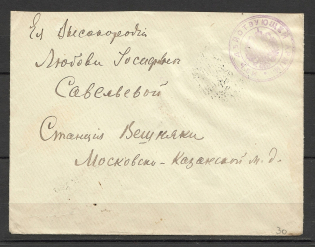 Ея Высокородію
Любови Іосифовнѣ
Савельевой
Станція Вешняки
Московско-Казанской ж. д.
30